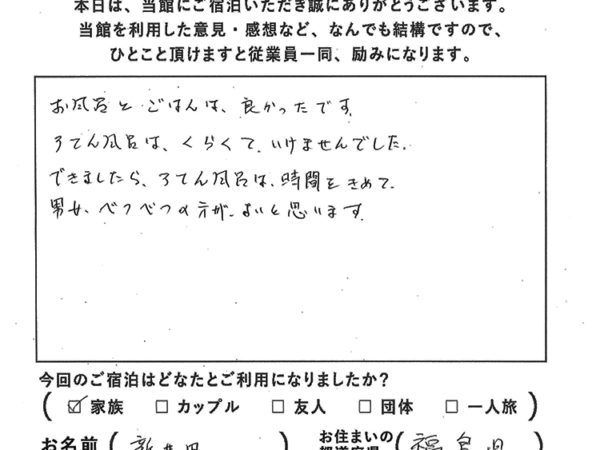 本日は、当館にご宿泊いただき誠にありがとうございます。
当館を利用した意見・感想など、なんでも結構ですので、
ひとこと頂けますと従業員一同、励みになります。
お風呂とごはんは、良かったです。
ろてん風呂は、くらくて、いけませんでした。
できましたら、ろてん風呂は、時間をきめて、
男女、べつべつの方が、よいと思います。
今回のご宿泊はどなたとご利用になりましたか?
( ☑ 家族 □ カップル □ 友人 □ 団体 □ 一人旅 )
お名前 ( ) お住まいの ( 福島県 )